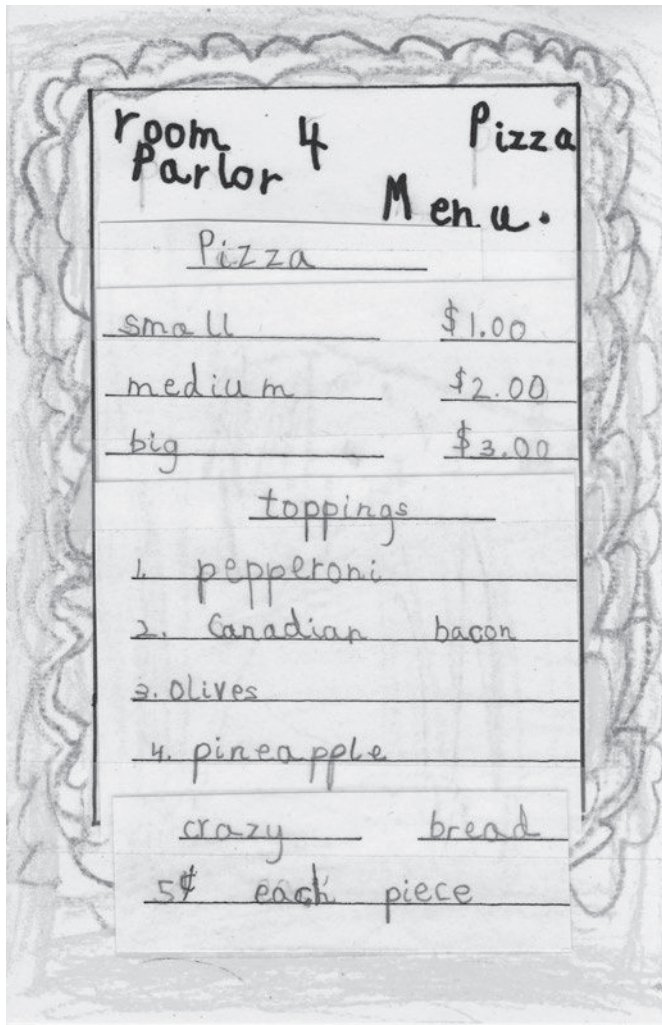 room 4 Pizza
Parlor
Menu.
Pizza
small $1.00
medium $2.00
big $3.00
toppings
1. pepperoni
2. Canadian bacon
3. Olives
4. pineapple
crazy bread
5¢ each piece